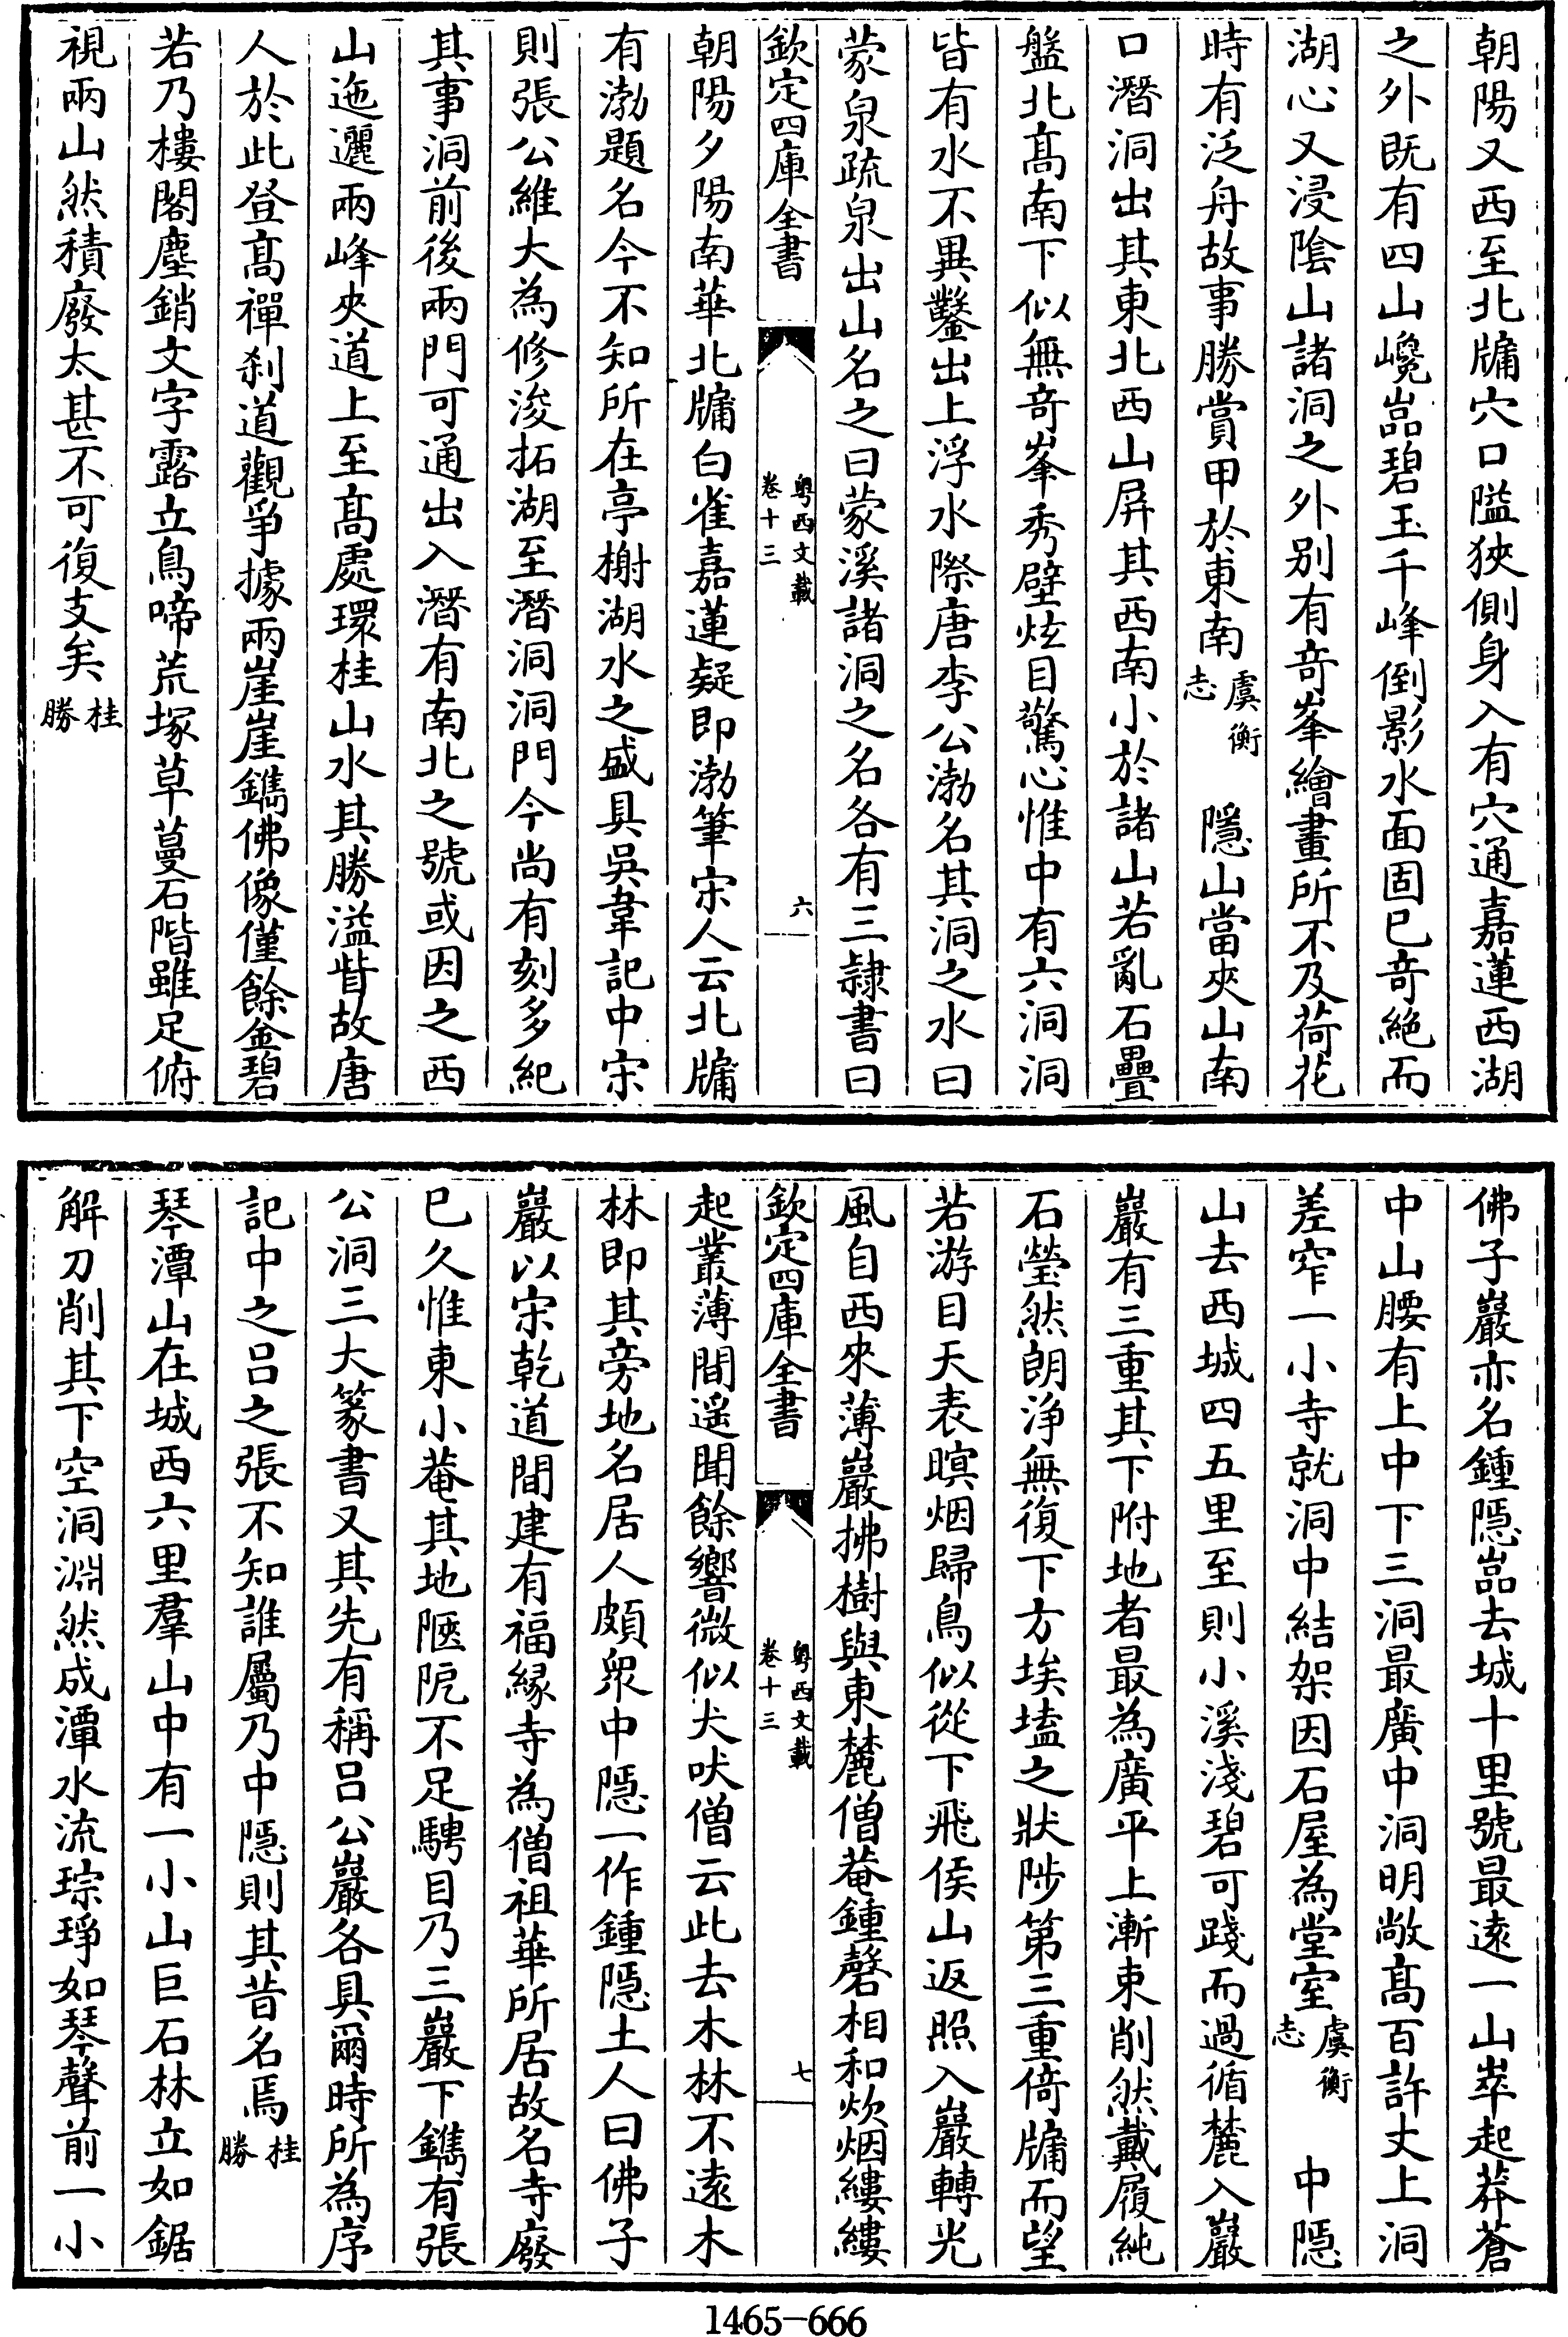 朝陽又西至北牖穴口隘狹側身入有穴通嘉蓮西湖
之外既有四山巉嵓碧玉千峰倒影水面固已竒絶而
湖心又浸隂山諸洞之外别有竒峯繪畫所不及荷花
時有泛舟故事勝賞甲於東南虞衡志　隱山當夾山南
口潛洞出其東北西山屏其西南小於諸山若亂石疊
盤北髙南下似無竒峯秀壁炫目驚心惟中有六洞洞
皆有水不異鑿出上浮水際唐李公渤名其洞之水曰
蒙泉疏泉出山名之曰蒙溪諸洞之名各有三隸書曰
欽定四庫全書　粤西文載卷十三　六
朝陽夕陽南華北牖白雀嘉蓮疑即渤筆宋人云北牖
有渤題名今不知所在亭榭湖水之盛具吳韋記中宋
則張公維大為修浚拓湖至潛洞洞門今尚有刻多紀
其事洞前後兩門可通出入潛有南北之號或因之西
山迤邐兩峰夾道上至髙處環桂山水其勝溢眥故唐
人於此登髙禪刹道觀爭據兩崖崖鐫佛像僅餘金碧
若乃樓閣塵銷文字露立鳥啼荒塚草蔓石階雖足俯
視兩山然積廢太甚不可復支矣桂勝
佛子巖亦名鍾隱嵓去城十里號最逺一山崒起莽蒼
中山腰有上中下三洞最廣中洞明敞髙百許丈上洞
差窄一小寺就洞中結架因石屋為堂室虞衡志　中隱
山去西城四五里至則小溪淺碧可踐而過循麓入巖
巖有三重其下附地者最為廣平上漸束削然戴履純
石瑩然朗淨無復下方埃𡏖之狀陟第三重倚牖而望
若游目天表暝烟歸鳥似從下飛俟山返照入巖轉光
風自西來薄巖拂樹與東麓僧菴鍾磬相和炊烟縷縷
欽定四庫全書　粤西文載卷十三　七
起叢薄間遥聞餘響微似犬吠僧云此去木林不逺木
林即其旁地名居人頗衆中隱一作鍾隱土人曰佛子
巖以宋乾道間建有福縁寺為僧祖華所居故名寺廢
已久惟東小菴其地陿阨不足騁目乃三巖下鐫有張
公洞三大篆書又其先有稱呂公巖各具爾時所為序
記中之呂之張不知誰屬乃中隱則其昔名焉桂勝
琴潭山在城西六里羣山中有一小山巨石林立如鋸
解刀削其下空洞淵然成潭水流琮琤如琴聲前一小
1465-666